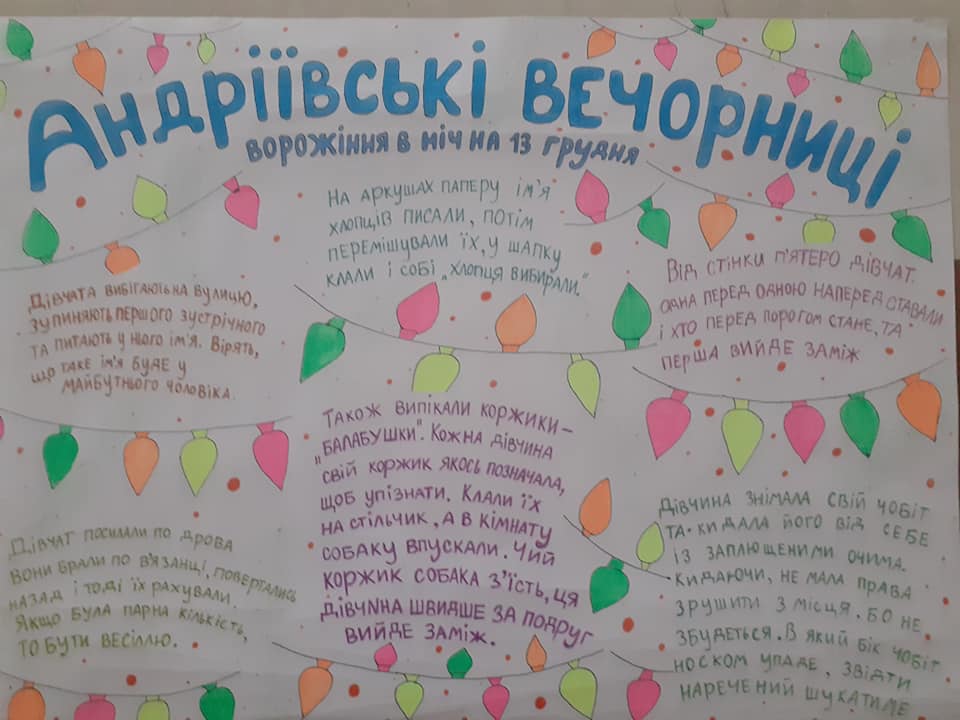 Андріївські вечорниці
ворожіння в ніч на 13 грудня
На аркушах паперу ім'я
хлопців писали, потім
перемішували їх, у шапку
клали і собі „хлопця вибирали".
Дівчата вибігають на вулицю,
зупиняють першого зустрічного
та питають у нього ім'я. Вірять,
що таке ім'я буде у
майбутнього чоловіка.
Від стінки п'ятеро дівчат.
одна перед одною наперед ставали
і хто перед порогом стане, та
перша вийде заміж
Також випікали коржики –
„балабушки". Кожна дівчина
свій коржик якось позначала,
щоб упізнати. Клали їх
на стільчик, а в кімнату
собаку впускали. Чий
коржик собака з'їсть, ця
дівчина швидше за подруг
вийде заміж.
Дівчат посилали по дрова
вони брали по в'язанці, повертались
назад і тоді їх рахували.
Якщо була парна кількість,
то бути весіллю.
Дівчина знімала свій чобіт
та кидала його від себе
із заплющеними очима.
Кидаючи, не мала права
зрушити з місця. бо не
збудеться. В який бік чобіт
носком упаде, звідти
наречений шукатиме